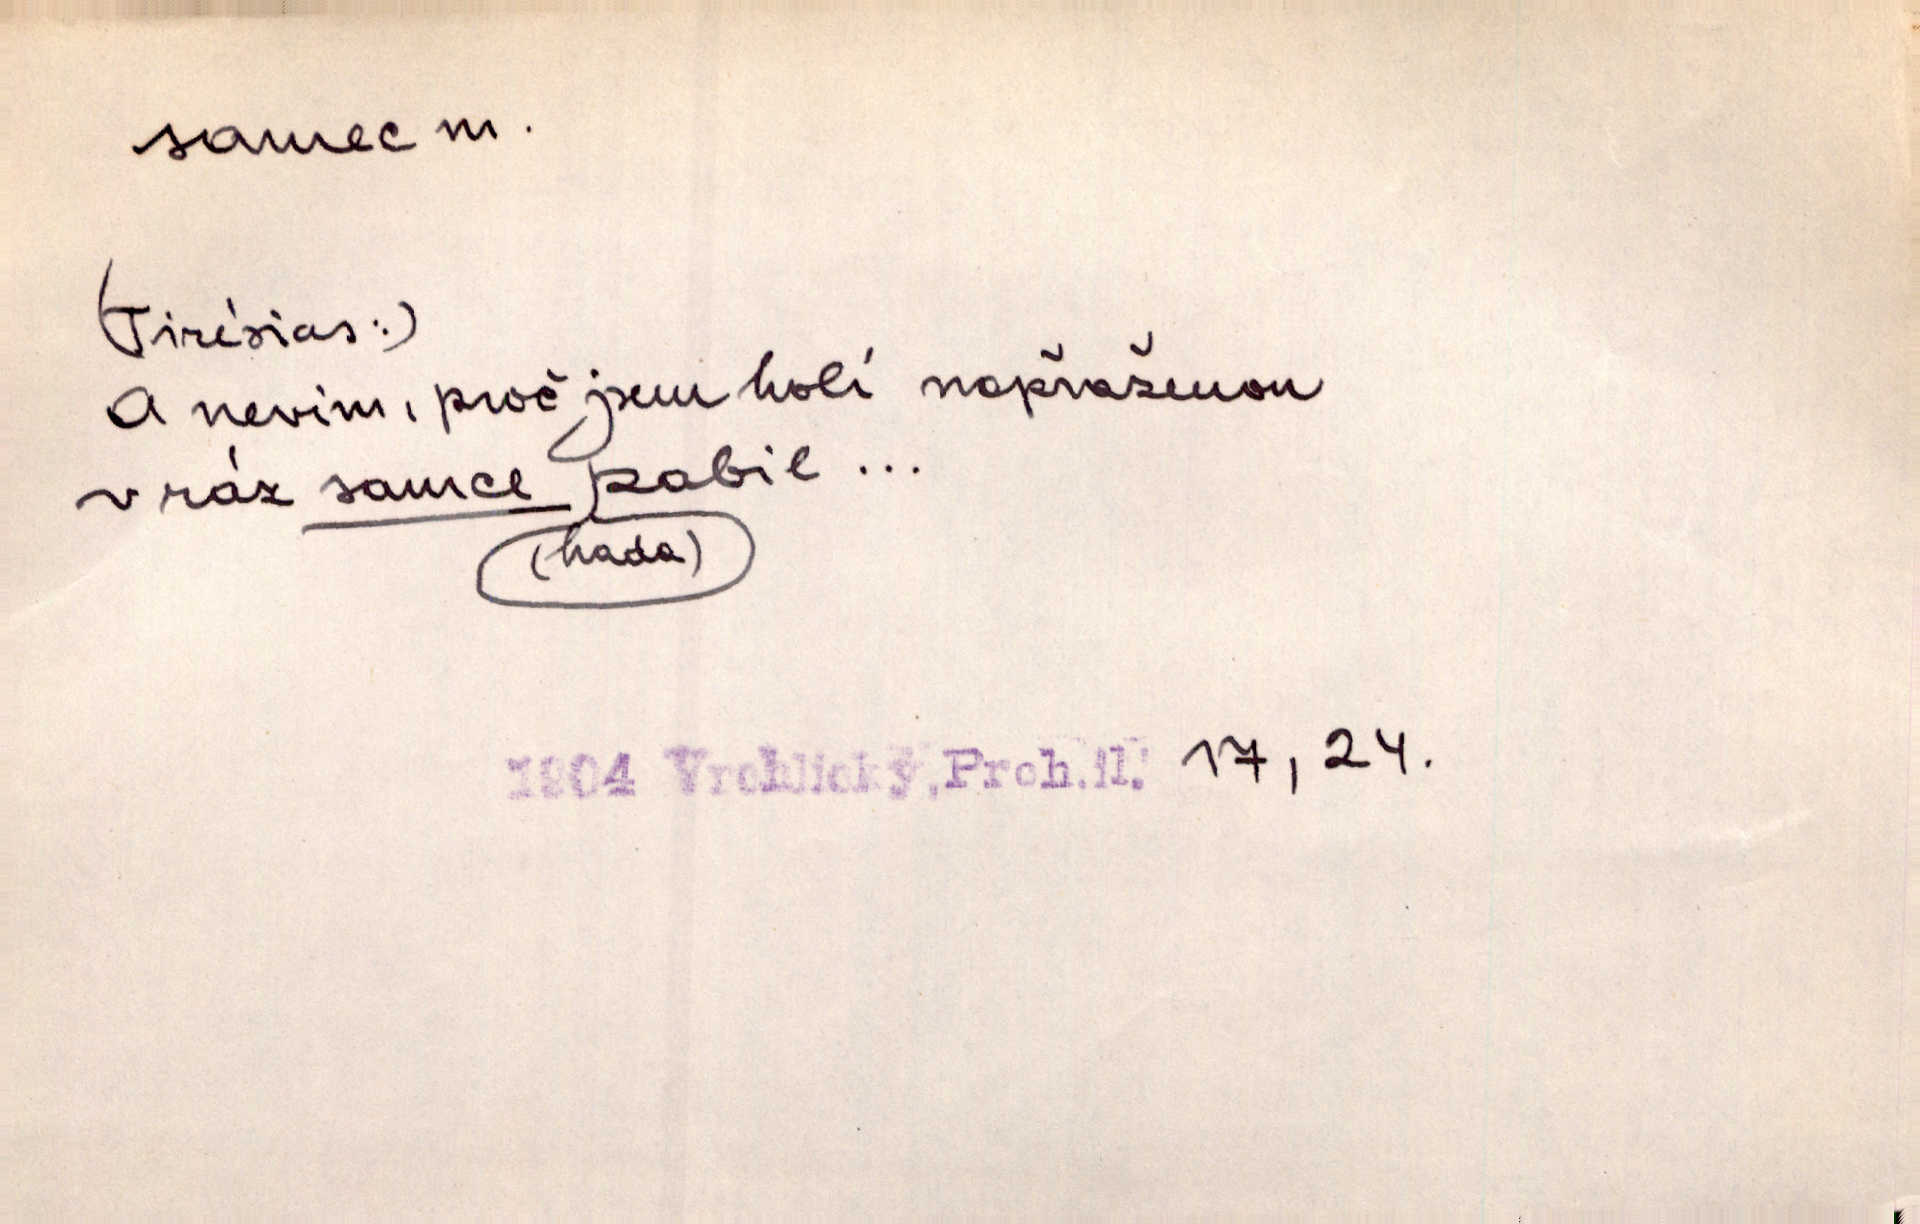 samec m.
(Tirésias:)
A nevím, proč jsem holí napřaženou
v ráz samce zabil ...
(hada)
1904 Vrchlický, Proh.il. 17, 24.